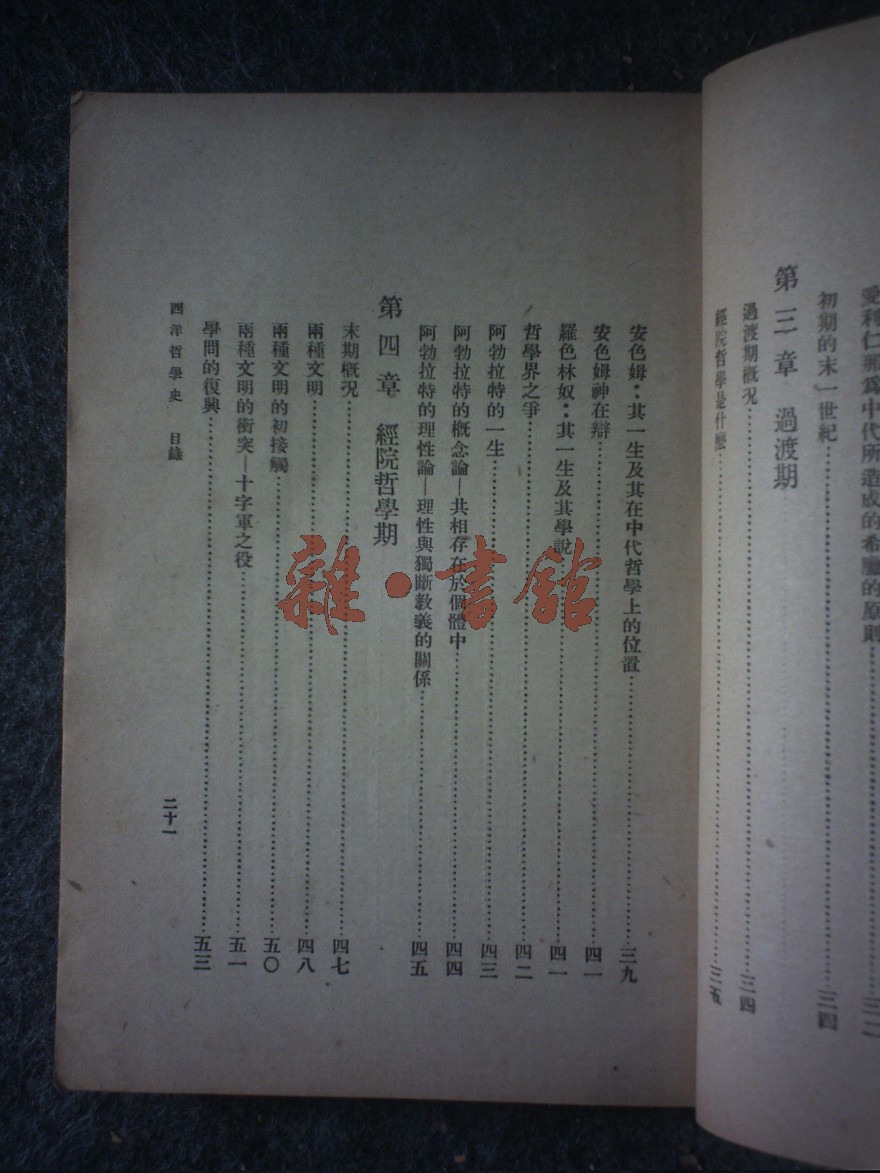 愛利仁那爲中代所造成的希臘的原則……三二
初期的末一世紀……三四
第三章　過渡期
過渡期概況……三四
經院哲學是什麼……三五
安色姆：其一生及其在中代哲學上的位置……三九
安色姆神在辯……四一
羅色林奴：其一生及其學說……四一
哲學界之爭……四二
阿勃拉特的一生……四三
阿勃拉特的概念論—共相存在於個體中……四四
阿勃拉特的理性論—理性與獨斷教義的關係……四五
第四章　經院哲學期
末期概况……四七
兩種文明……四八
兩種文明的初接觸……五〇
兩種文明的衝突—十字軍之役……五一
學問的復興……五三
西洋哲學史　目錄
二十一
雜·書館